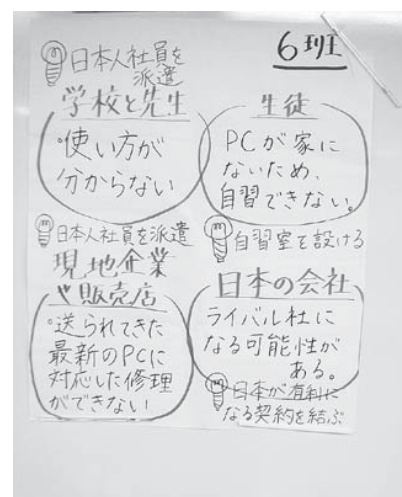 6班
日本人社員を
派遣
学校と先生
・使い方が
分からない
生徒
PCが家に
ないため、
自習できない。
自習室を設ける
日本人社員を派遣
現地企業
や販売店
・送られてきた
最新のPCに
対応した修理
ができない
日本の会社
ライバル社に
なる可能性が
ある。
日本が有利に
なる契約を結ぶ